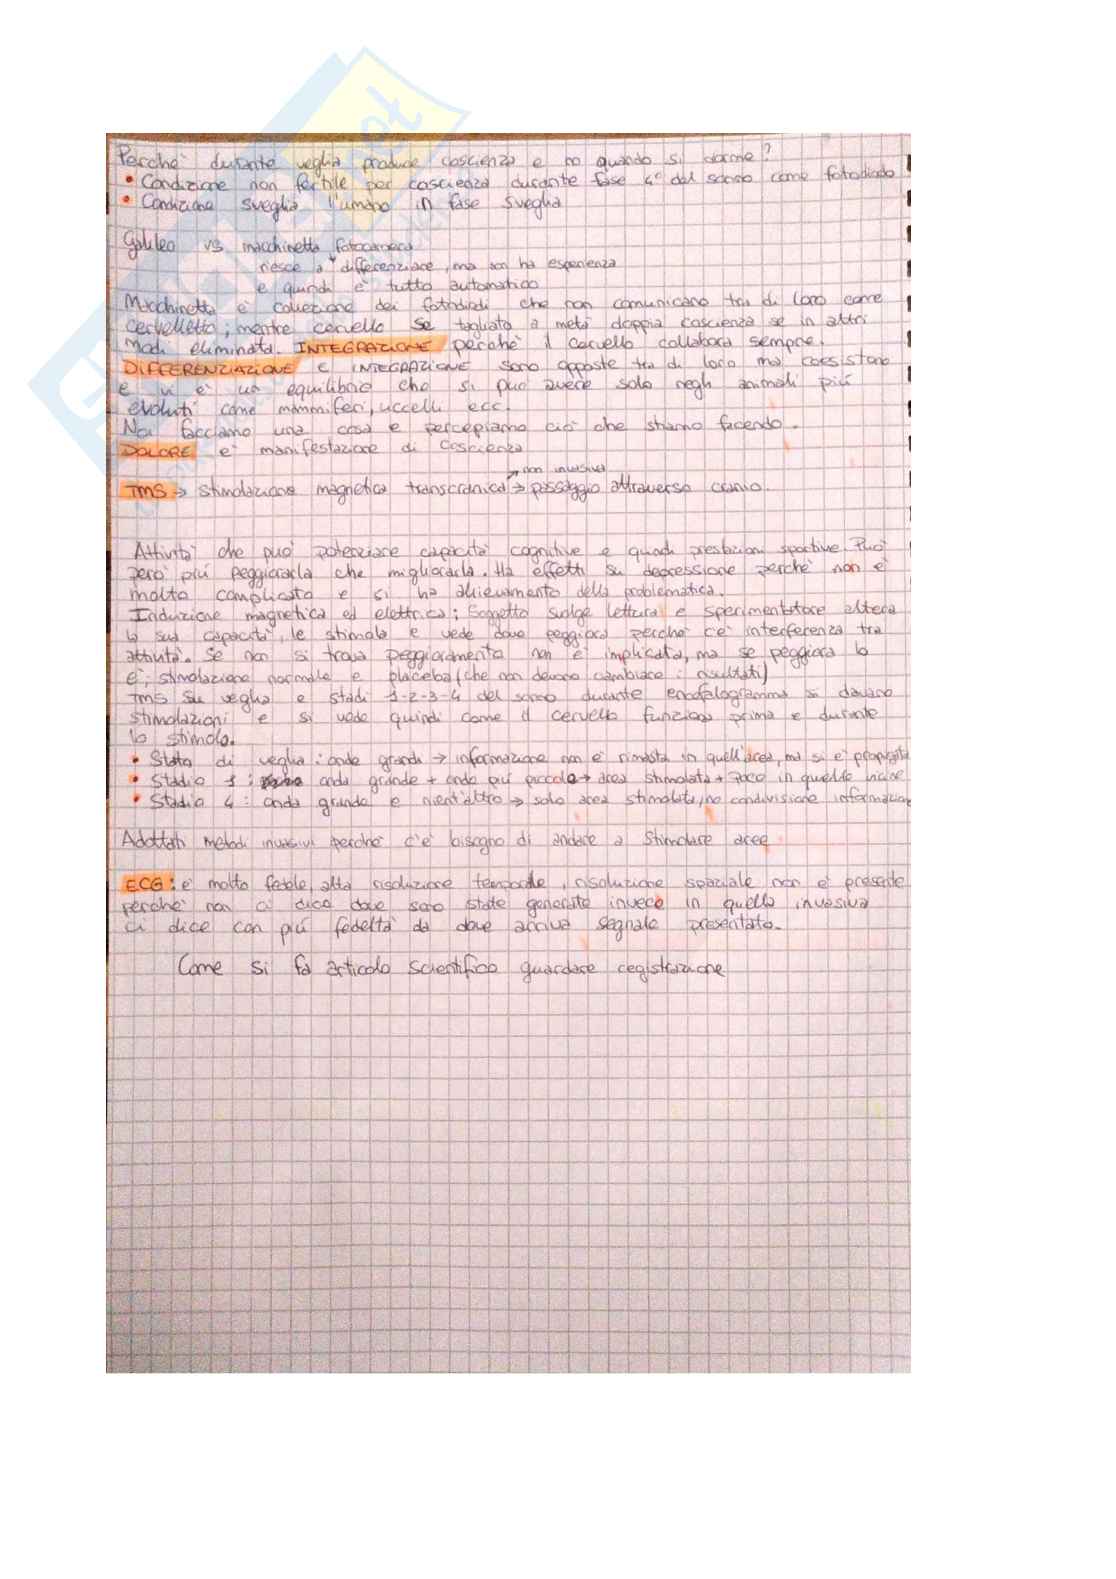 Perché durante veglia produce coscienza e no quando si dorme?
• Condizione non fertile per coscienza durante fase 4° del sonno come fotodiodo
• Condizione sveglia l'umano in fase sveglia
Galileo vs macchinetta fotocamera
riesce a differenziare, ma non ha esperienza
e quindi è tutto automatico
Macchinetta è collezione dei fotodiodi che non comunicano tra di loro come
cervelletto; mentre cervello se tagliato a metà doppia coscienza se in altri
modi eliminata. INTEGRAZIONE perché il cervello collabora sempre.
DIFFERENZIAZIONE e INTEGRAZIONE sono opposte tra di loro ma coesistono
e vi è un equilibrio che si può avere solo negli animali più
evoluti come mammiferi, uccelli ecc.
Noi facciamo una cosa e percepiamo ciò che stiamo facendo.
DOLORE è manifestazione di coscienza
→ non invasiva
TMS → stimolazione magnetica transcranica → passaggio attraverso cranio.
Attività che può potenziare capacità cognitive e quindi prestazioni sportive. Può
però più peggiorarla che migliorarla. Ha effetti su depressione perché non è
molto complicato e si ha allievamento della problematica.
Induzione magnetica ed elettrica: Soggetto svolge lettura e sperimentatore altera
la sua capacità, le stimola e vede dove peggiora perché c'è interferenza tra
attività. Se non si trova peggioramento non è implicata, ma se peggiora lo
è; stimolazione normale e placebo (che non devono cambiare i risultati)
TMS su veglia e stadi 1-2-3-4 del sonno durante encefalogramma si davano
stimolazioni e si vede quindi come il cervello funziona prima e durante
lo stimolo.
• Stato di veglia: onde grandi → informazione non è rimasta in quell'area, ma si è propagata
• Stadio 1: onda grande + onde più piccole → area stimolata + poco in quelle vicine
• Stadio 4: onda grande e nient'altro → solo area stimolata, no condivisione informazione
Adottati metodi invasivi perché c'è bisogno di andare a stimolare aree
ECG: è molto fedele, alta risoluzione temporale, risoluzione spaziale non è presente
perché non ci dice dove sono state generate invece in quella invasiva
ci dice con più fedeltà da dove arriva segnale presentato.
Come si fa articolo scientifico guardare registrazione